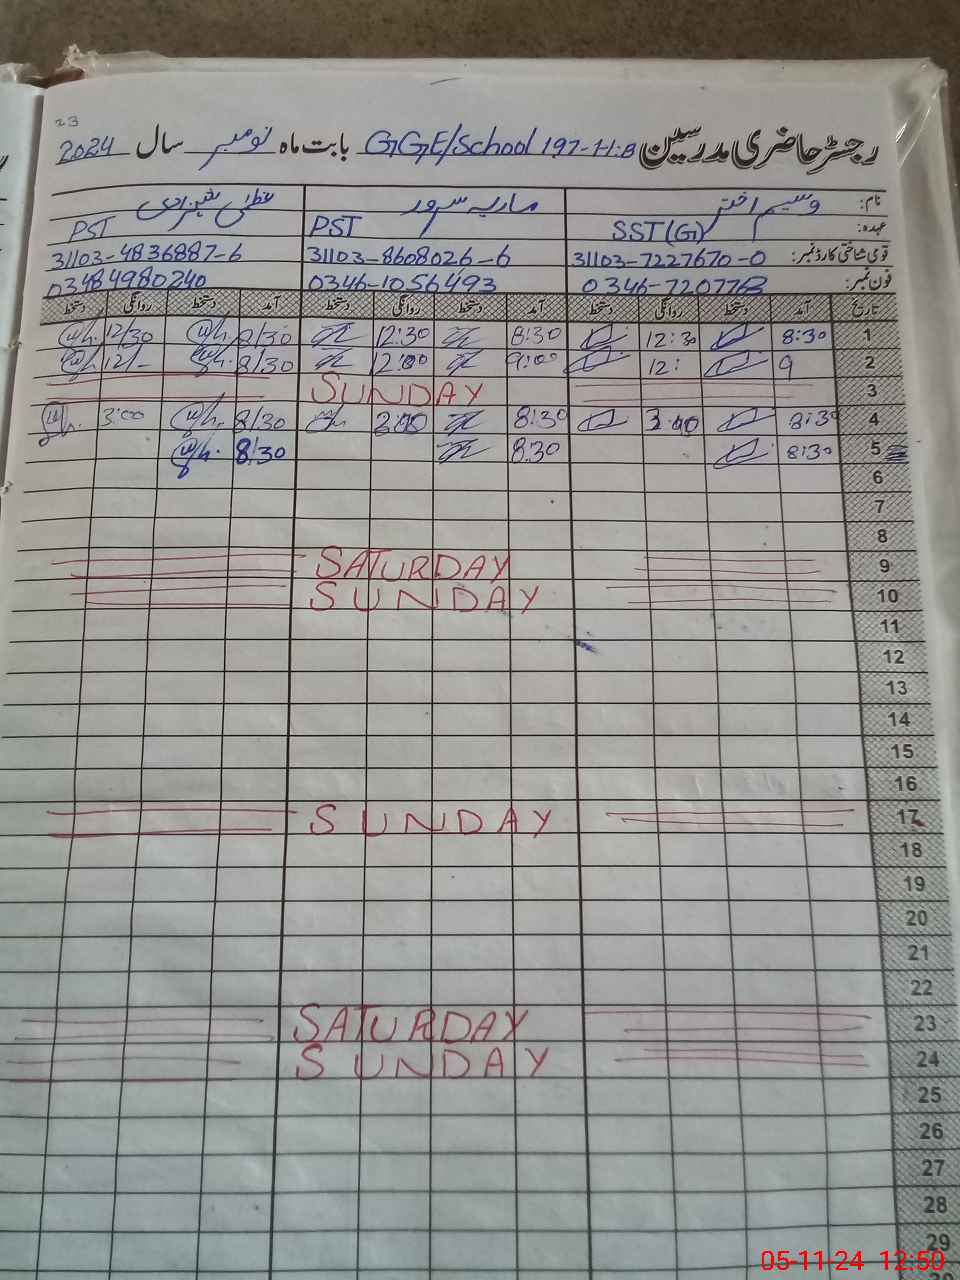 23
رجسٹر حاضری مدرسین GGE/School 197-H:B بابت ماہ نومبر سال 2024
نام: وسیم اختر ماریہ سرور عظمیٰ شہزادی
عہدہ: SST(G) PST PST
قومی شناختی کارڈ نمبر: 31103-7227670-0 31103-8608026-6 31103-4836887-6
فون نمبر: 0346-7207763 0346-1056493 03484980240
تاریخ آمد دستخط روانگی دستخط آمد دستخط روانگی دستخط آمد دستخط روانگی دستخط
1 8:30 12:30 8:30 12:30 8/30 12/30
2 9 12: 9:00 12:00 8/30 12/-
3 SUNDAY
4 8:30 3:00 8:30 3:00 8/30 3:00
5 8:30 8:30 8/30
6
7
8
9 SATURDAY
10 SUNDAY
11
12
13
14
15
16
17 SUNDAY
18
19
20
21
22
23 SATURDAY
24 SUNDAY
25
26
27
28
29
05-11-24 12:50